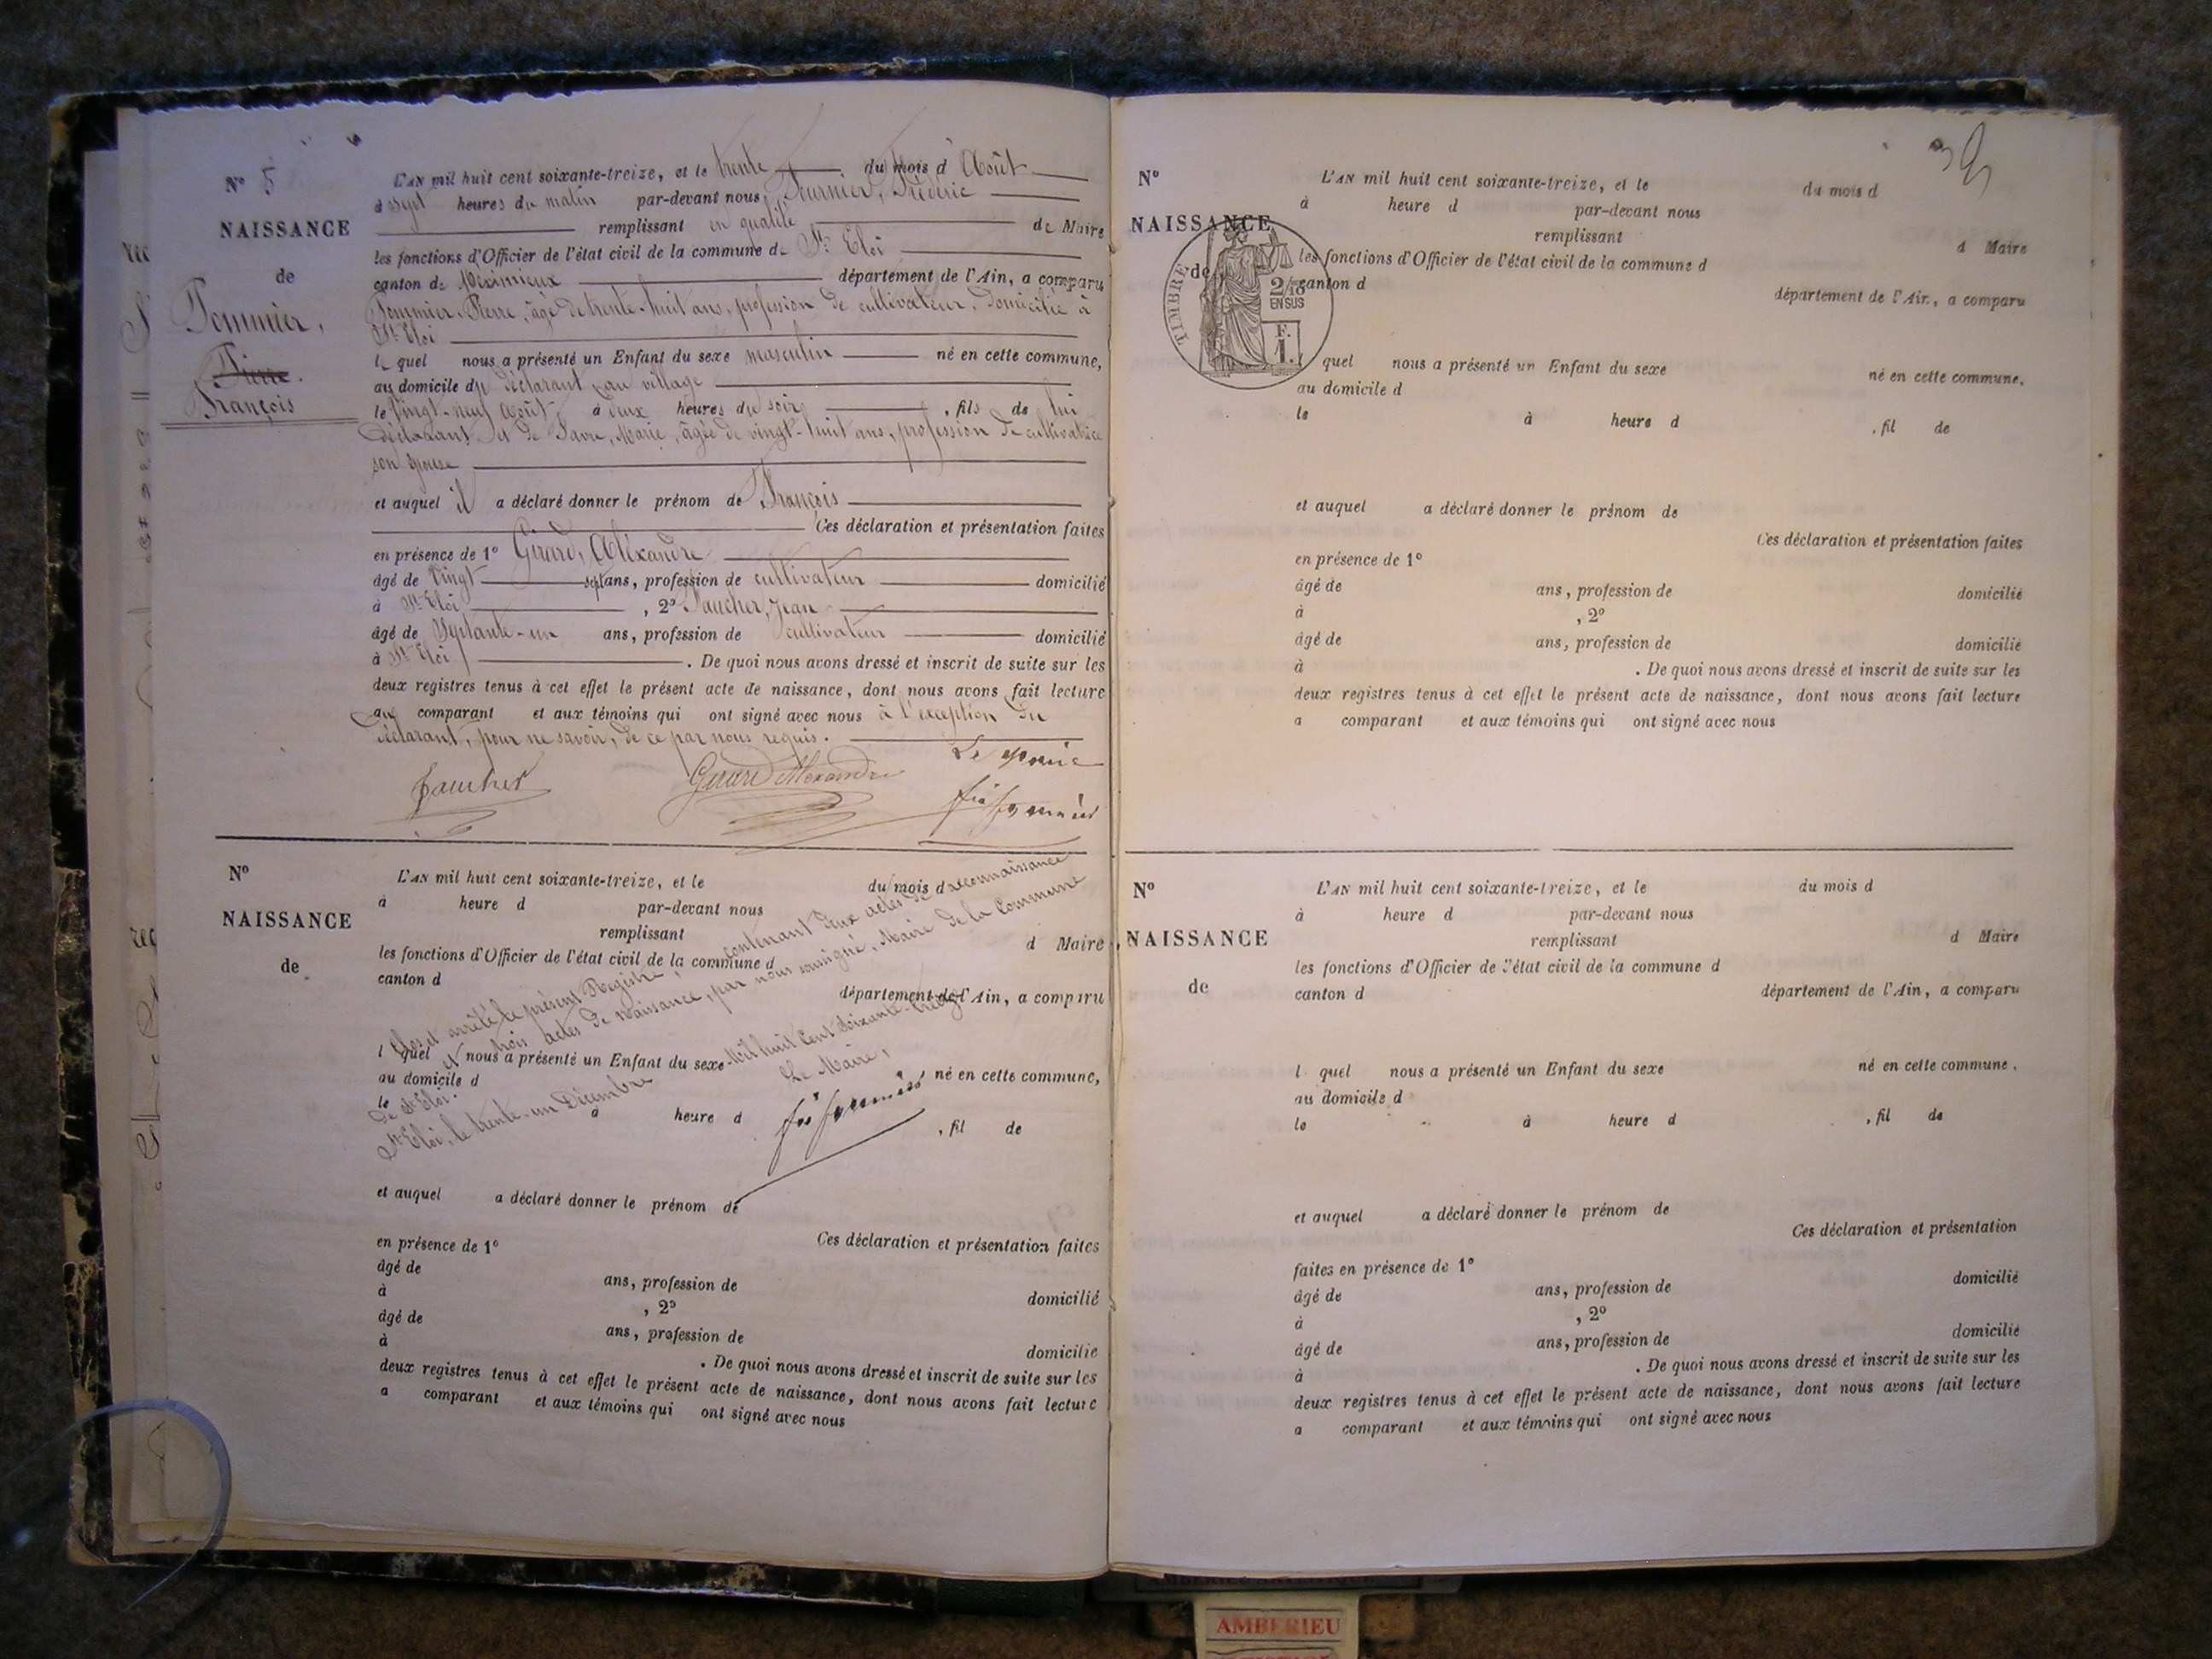 N° 5
NAISSANCE
de
Pommier,
Pierre.
François
L'AN mil huit cent soixante-treize, et le trente du mois d'Août
à sept heures du matin par-devant nous Fournier, Frédéric
remplissant en qualité de Maire
les fonctions d'Officier de l'état civil de la commune de St Eloi
canton de Meximieux département de l'Ain, a comparu
Pommier Pierre, âgé de trente-huit ans, profession de cultivateur, domicilié à
St Eloi
lequel nous a présenté un Enfant du sexe masculin né en cette commune,
au domicile du déclarant au village
le vingt-neuf Août, à deux heures du soir, fils de lui
déclarant et de Favre, Marie, âgée de vingt-huit ans, profession de cultivatrice
son épouse
et auquel il a déclaré donner le prénom de François
Ces déclaration et présentation faites
en présence de 1° Girard, Alexandre
âgé de vingt sept ans, profession de cultivateur domicilié
à St Eloi, 2° Faucher, Jean
âgé de septante-un ans, profession de cultivateur domicilié
à St Eloi. De quoi nous avons dressé et inscrit de suite sur les
deux registres tenus à cet effet le présent acte de naissance, dont nous avons fait lecture
au comparant et aux témoins qui ont signé avec nous à l'exception du
déclarant, pour ne savoir, de ce par nous requis.
Faucher Girard Alexandre Le Maire
N°
NAISSANCE
de
L'AN mil huit cent soixante-treize, et le du mois d
à heure d par-devant nous
remplissant
d Maire
les fonctions d'Officier de l'état civil de la commune d
canton d
département de l'Ain, a comparu
l quel nous a présenté un Enfant du sexe
né en cette commune,
au domicile d
le à heure d , fil de
Clos et arrêté le présent Registre, contenant deux actes de reconnaissance
et trois actes de naissance, par nous soussigné, Maire de la Commune
de St Eloi.
St Eloi, le trente-un Décembre Mil huit Cent Soixante-treize
Le Maire,
et auquel a déclaré donner le prénom de
Ces déclaration et présentation faites
en présence de 1°
âgé de ans, profession de domicilié
à , 2°
âgé de ans, profession de domicilié
à . De quoi nous avons dressé et inscrit de suite sur les
deux registres tenus à cet effet le présent acte de naissance, dont nous avons fait lecture
a comparant et aux témoins qui ont signé avec nous
N°
NAISSANCE
de
TIMBRE
2/10
EN SUS
F.
1.
L'AN mil huit cent soixante-treize, et le du mois d
à heure d par-devant nous
remplissant
d Maire
les fonctions d'Officier de l'état civil de la commune d
canton d
département de l'Ain, a comparu
quel nous a présenté un Enfant du sexe
né en cette commune.
au domicile d
le à heure d , fil de
et auquel a déclaré donner le prénom de
Ces déclaration et présentation faites
en présence de 1°
âgé de ans, profession de domicilié
à , 2°
âgé de ans, profession de domicilié
à . De quoi nous avons dressé et inscrit de suite sur les
deux registres tenus à cet effet le présent acte de naissance, dont nous avons fait lecture
a comparant et aux témoins qui ont signé avec nous
N°
NAISSANCE
de
L'AN mil huit cent soixante-treize, et le du mois d
à heure d par-devant nous
remplissant d Maire
les fonctions d'Officier de l'état civil de la commune d
canton d département de l'Ain, a comparu
l quel nous a présenté un Enfant du sexe né en cette commune.
au domicile d
le à heure d , fil de
et auquel a déclaré donner le prénom de
Ces déclaration et présentation
faites en présence de 1°
âgé de ans, profession de domicilié
à , 2°
âgé de ans, profession de domicilié
à . De quoi nous avons dressé et inscrit de suite sur les
deux registres tenus à cet effet le présent acte de naissance, dont nous avons fait lecture
a comparant et aux témoins qui ont signé avec nous
AMBERIEU